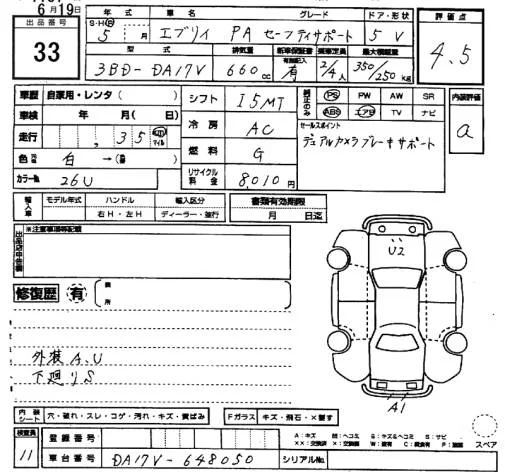 6月19日
出品番号
33
年式 車名 グレード ドア・形状
S・H・R 5 月 エブリイ PA セーフティサポート 5 V
評価点
4.5
型式 排気量 新車保証書 乗車定員 最大積載量
3BD-DA17V 660cc 有無記入 有 2/4人 350/250kg
車歴 自家用・レンタ( )
車検 年 月( 日)
走行 , 35 km マイル
色 白 →( )
カラー№ 26U
シフト I5MT
冷房 AC
燃料 G
リサイクル料金 8,010円
純正のみ
PS PW AW SR
ABS エアB TV ナビ
内装評価
a
セールスポイント
デュアルカメラブレーキサポート
輸入車 モデル年式 ハンドル 輸入区分
右H・左H ディーラー・並行
書類有効期限
月 日迄
出品店申告欄
※注意事項等記載
修復歴 有 箇所
U2
外装 A、U
下廻り S
A1
内装シート 穴・破れ・スレ・コゲ・汚れ・キズ・黄ばみ
Fガラス キズ・飛石・×要す
検査員
11
登録番号
車台番号 DA17V-648050 シリアル№
A:キズ U:ヘコミ S:サビ
スペア